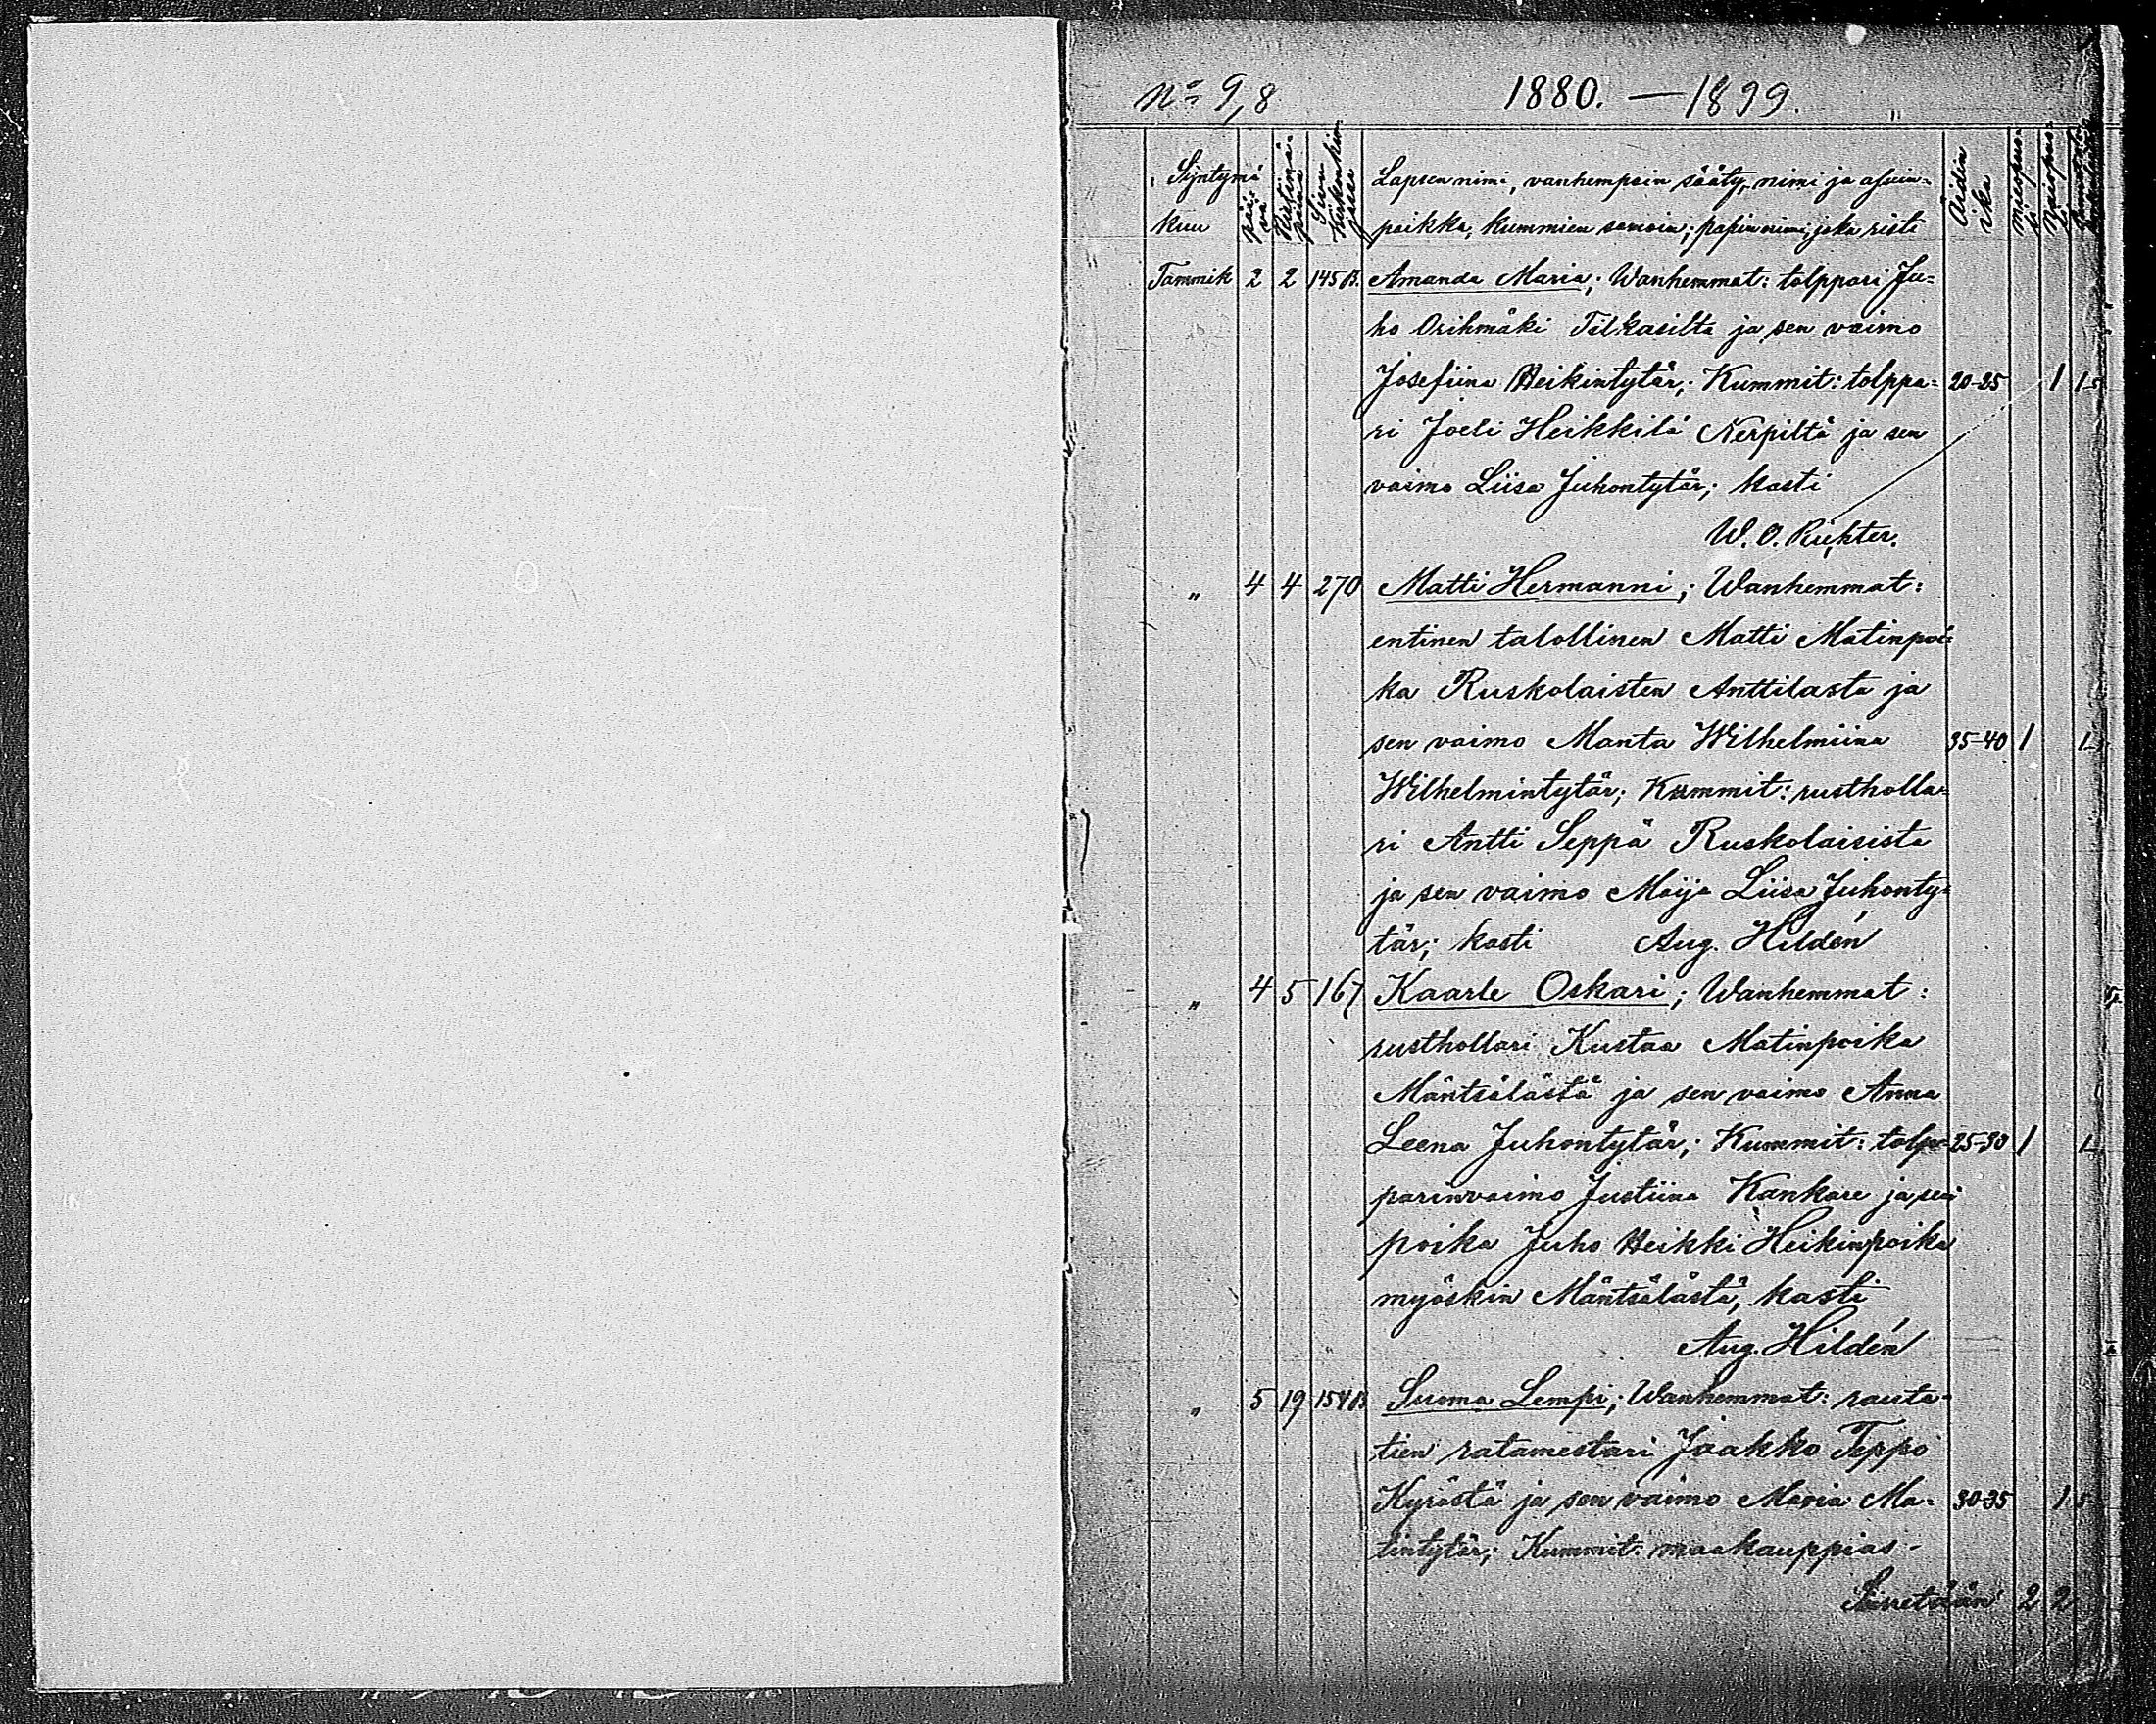 No 9,8 1880. — 1899.
Syntymä
kuu
päivä
Ristimä päivä
Sivu Kirkonkirjassa
Lapsen nimi, vanhempain sääty, nimi ja asuin-
paikka, kummien samoin; papin nimi, joka risti
Äidin ikä
Miespuol.
Tammik 2 2 145 B. Amanda Maria; Wanhemmat: tolppari Ju-
ho Orihmäki Tilkasilta ja sen vaimo
Josefiina Heikintytär; Kummit: tolppa- 20-25 1 1
ri Joeli Heikkilä Nerpiltä ja sen
vaimo Liisa Juhontytär; kasti
W. O. Richter.
„ 4 4 270 Matti Hermanni; Wanhemmat:
entinen talollinen Matti Matinpoi-
ka Ruskolaisten Anttilasta ja
sen vaimo Manta Wilhelmiina 35-40 1 1
Wilhelmintytär; Kummit: rustholla-
ri Antti Seppä Ruskolaisista
ja sen vaimo Maija Liisa Juhonty-
tär; kasti Aug. Hildén
„ 4 5 167 Kaarle Oskari; Wanhemmat:
rusthollari Kustaa Matinpoika
Mäntsälästä ja sen vaimo Anna
Leena Juhontytär; Kummit: tolp- 25-30 1 1
parinvaimo Justiina Kankare ja sen
poika Juho Heikki Heikinpoika
myöskin Mäntsälästä, kasti
Aug. Hildén
„ 5 19 154 B Suoma Lempi; Wanhemmat: rauta-
tien ratamestari Jaakko Teppo
Kyröstä ja sen vaimo Maria Ma- 30-35 1
tintytär; Kummit: maakauppias-
Siirretään 2 2